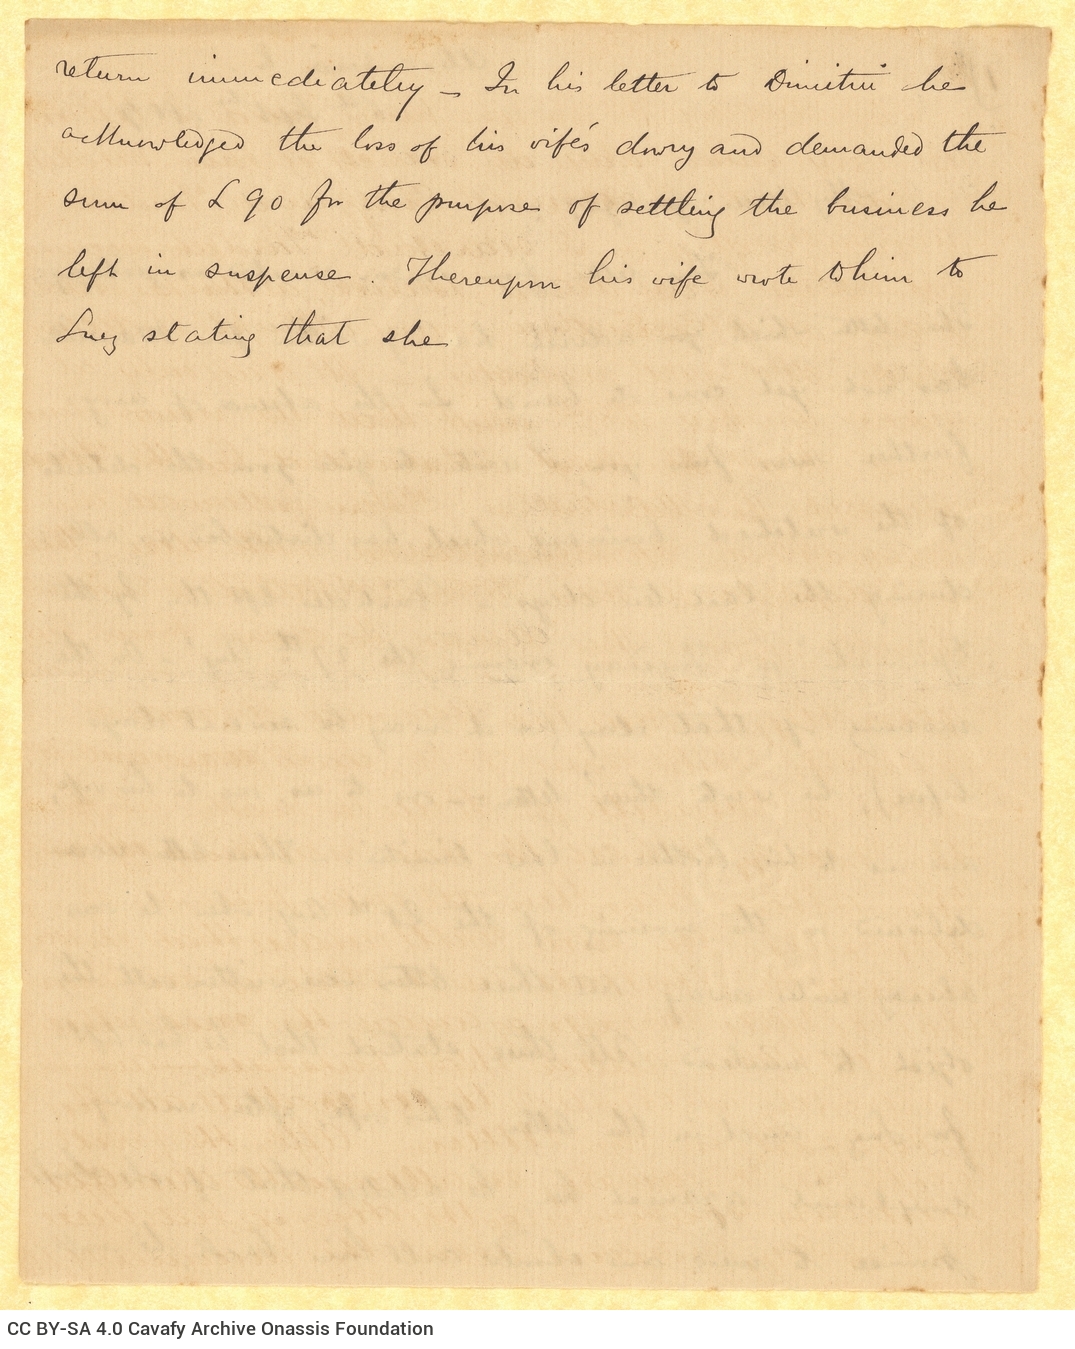 return immediately — In his letter to Dimitri he
acknowledged the loss of his wife's dowry and demanded the
sum of £ 90 for the purpose of settling the business he
left in suspense. Thereupon his wife wrote to him to
Suez stating that she
CC BY-SA 4.0 Cavafy Archive Onassis Foundation